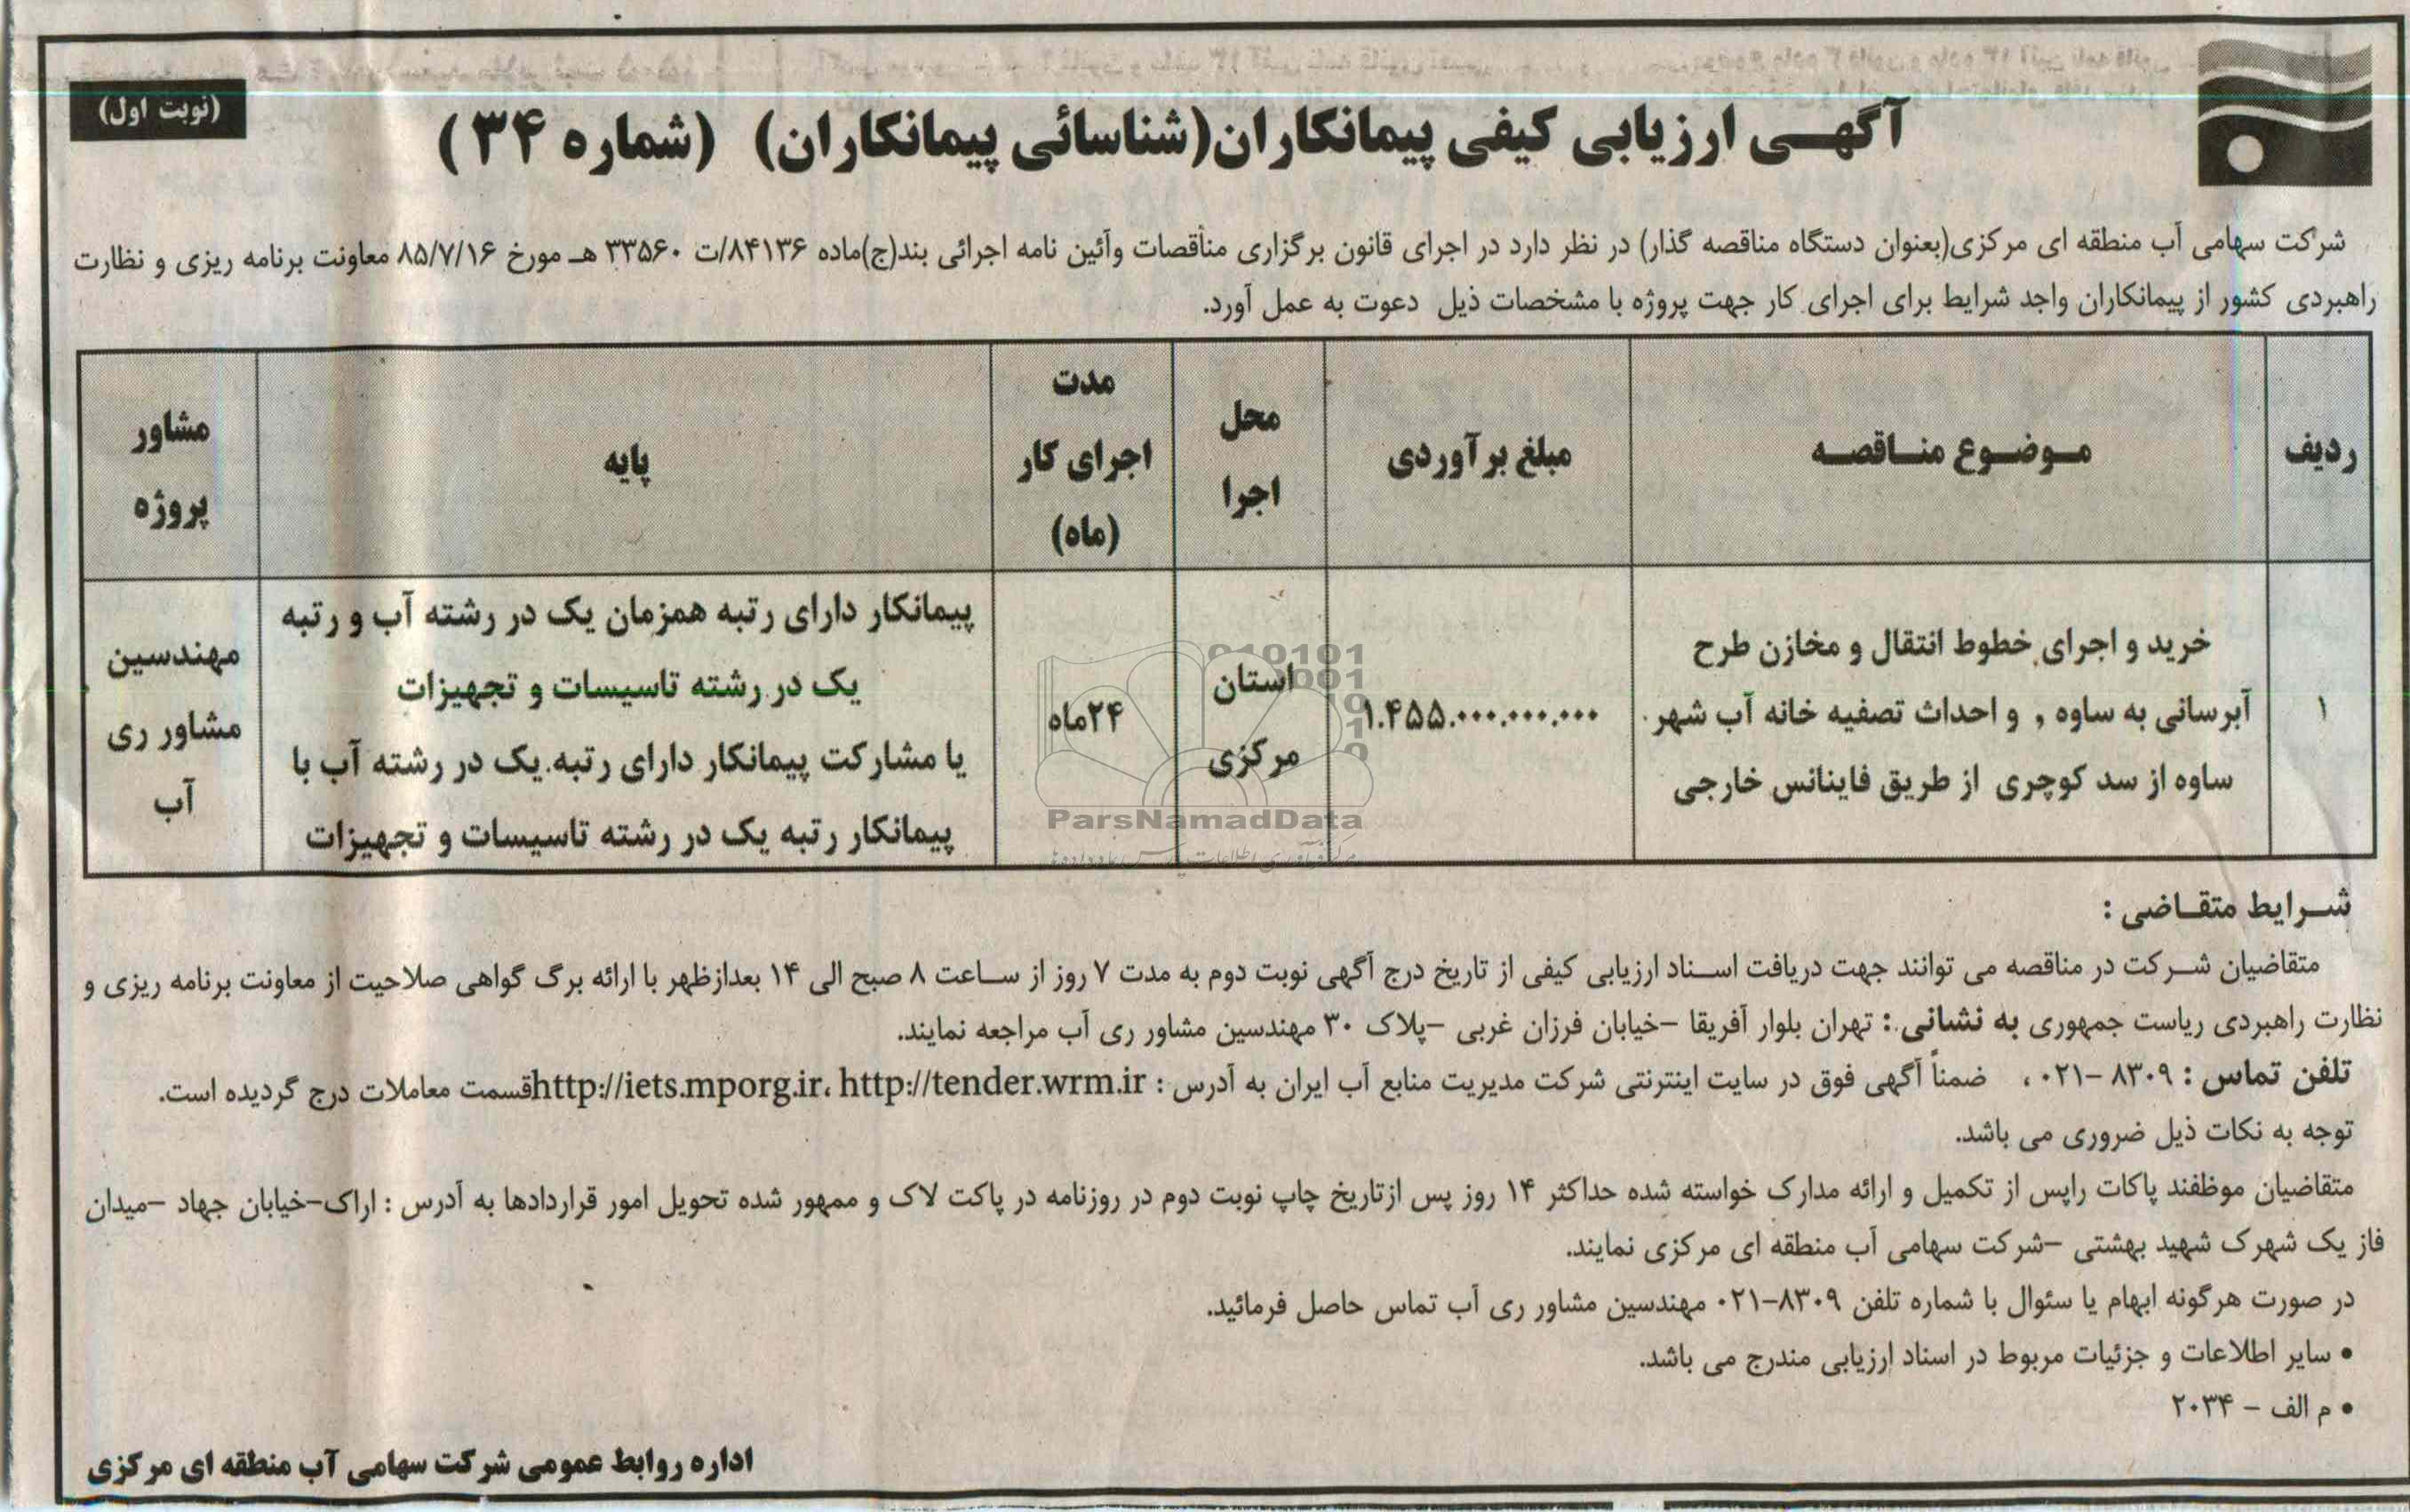 (نوبت اول)
آگهی ارزیابی کیفی پیمانکاران(شناسائی پیمانکاران) (شماره ۳۴)
شرکت سهامی آب منطقه ای مرکزی(بعنوان دستگاه مناقصه گذار) در نظر دارد در اجرای قانون برگزاری مناقصات وآئین نامه اجرائی بند(ج)ماده ۸۴۱۳۶/ت ۳۳۵۶۰ هـ مورخ ۸۵/۷/۱۶ معاونت برنامه ریزی و نظارت
راهبردی کشور از پیمانکاران واجد شرایط برای اجرای کار جهت پروژه با مشخصات ذیل دعوت به عمل آورد.
ردیف
موضوع مناقصه
مبلغ برآوردی
محل
اجرا
مدت
اجرای کار
(ماه)
پایه
مشاور
پروژه
۱
خرید و اجرای خطوط انتقال و مخازن طرح
آبرسانی به ساوه , و احداث تصفیه خانه آب شهر
ساوه از سد کوچری از طریق فاینانس خارجی
۱.۴۵۵.۰۰۰.۰۰۰.۰۰۰
استان
مرکزی
۲۴ماه
پیمانکار دارای رتبه همزمان یک در رشته آب و رتبه
یک در رشته تاسیسات و تجهیزات
یا مشارکت پیمانکار دارای رتبه یک در رشته آب با
پیمانکار رتبه یک در رشته تاسیسات و تجهیزات
مهندسین
مشاور ری
آب
ParsNamadData
شرایط متقاضی :
متقاضیان شرکت در مناقصه می توانند جهت دریافت اسناد ارزیابی کیفی از تاریخ درج آگهی نوبت دوم به مدت ۷ روز از ساعت ۸ صبح الی ۱۴ بعدازظهر با ارائه برگ گواهی صلاحیت از معاونت برنامه ریزی و
نظارت راهبردی ریاست جمهوری به نشانی : تهران بلوار آفریقا –خیابان فرزان غربی –پلاک ۳۰ مهندسین مشاور ری آب مراجعه نمایند.
تلفن تماس : ۸۳۰۹ –۰۲۱ ، ضمناً آگهی فوق در سایت اینترنتی شرکت مدیریت منابع آب ایران به آدرس : http://iets.mporg.ir، http://tender.wrm.irقسمت معاملات درج گردیده است.
توجه به نکات ذیل ضروری می باشد.
متقاضیان موظفند پاکات راپس از تکمیل و ارائه مدارک خواسته شده حداکثر ۱۴ روز پس ازتاریخ چاپ نوبت دوم در روزنامه در پاکت لاک و ممهور شده تحویل امور قراردادها به آدرس : اراک–خیابان جهاد –میدان
فاز یک شهرک شهید بهشتی –شرکت سهامی آب منطقه ای مرکزی نمایند.
در صورت هرگونه ابهام یا سئوال با شماره تلفن ۸۳۰۹–۰۲۱ مهندسین مشاور ری آب تماس حاصل فرمائید.
• سایر اطلاعات و جزئیات مربوط در اسناد ارزیابی مندرج می باشد.
• م الف – ۲۰۳۴
اداره روابط عمومی شرکت سهامی آب منطقه ای مرکزی